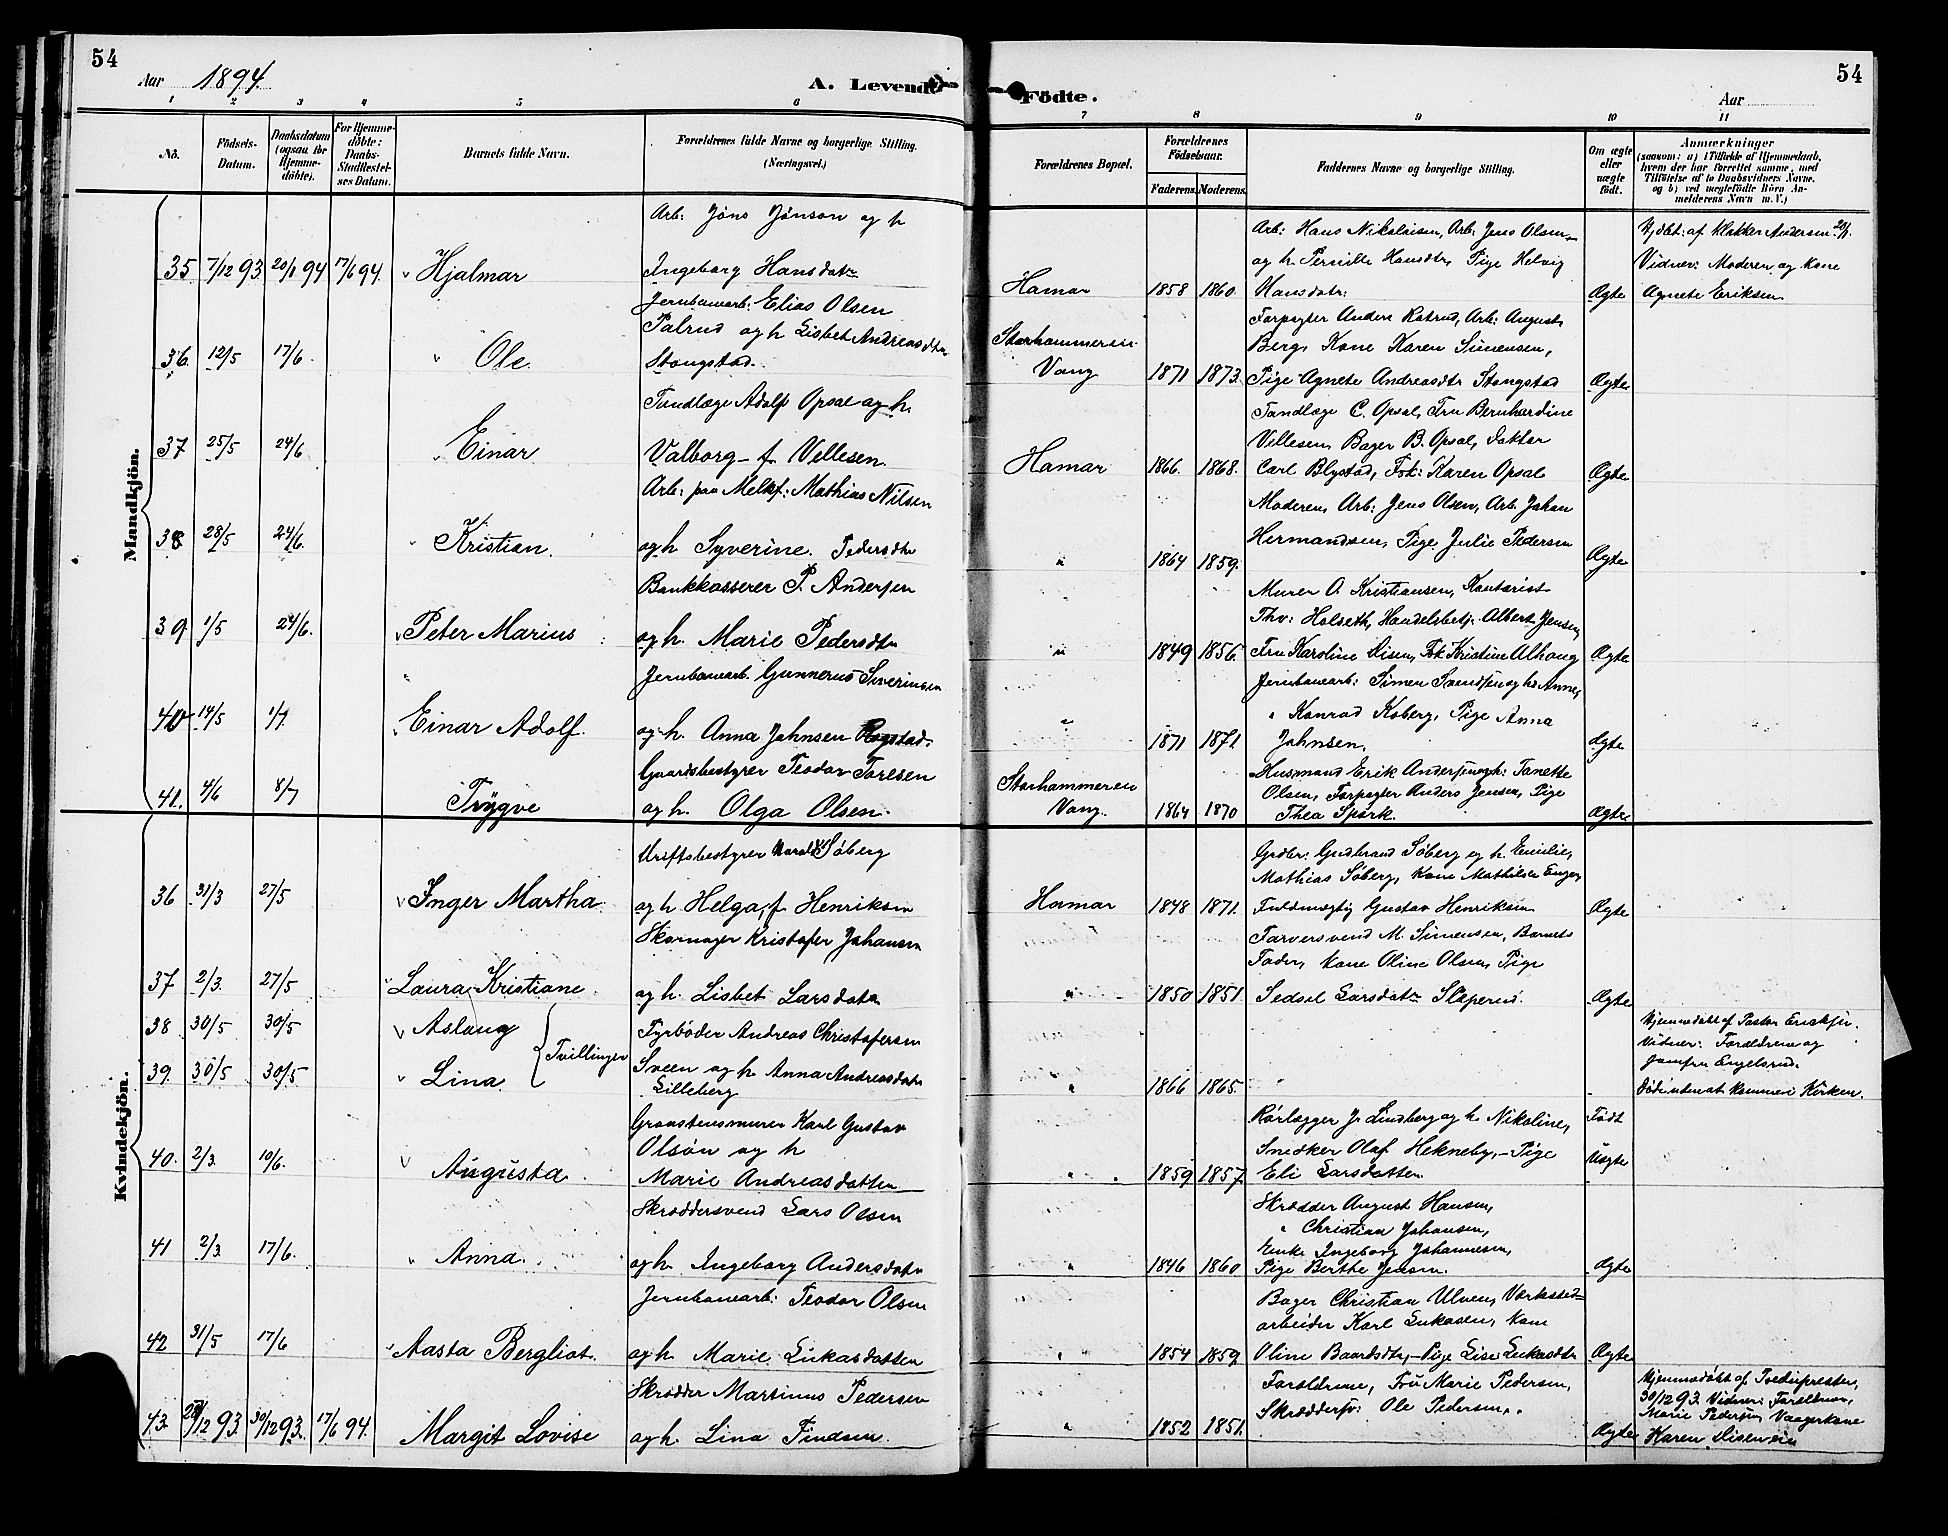 54
54
Aar 1894.
A. Levende
Födte.
Aar
1 2 3 4 5 6 7 8 9 10 11
No.
Födsels-Datum.
Daabsdatum (ogsaa for Hjemmedöbte).
For Hjemmedöbte: Daabs-Stadfæstelses Datum.
Barnets fulde Navn.
Forældrenes fulde Navne og borgerlige Stilling. (Næringsvei.)
Forældrenes Bopæl.
Forældrenes Födselsaar.
Faderens. Moderens.
Faddernes Navne og borgerlige Stilling.
Om ægte eller uægte födt.
Anmærkninger
(saasom: a) i Tilfælde af Hjemmedaab,
hvem der har forrettet samme, med
Tilföielse af to Daabsvidners Navne,
og b) ved uægtefödte Börn An-
melderens Navn m. V.)
Mandkjön.
35 7/12 93 20/1 94 17/6 94. Hjalmar
Arb: Jöns Jönson og h
Ingeborg Hansdatr
Hamar 1858 1860.
Arb: Hans Nikolaisen, Arb: Jens Olsen
og h. Pernille Hansdtr, Pige Helvig
Hansdatr:
Ægte
Hjdbt: af Klokker Andersen 20/1.
Vidner: Moderen og Kone
Agnete Eriksen.
36. 12/5 17/6. Ole
Jernbanearb: Elias Olsen
Palrud og h Lisbet Andreasdtr
Stangstad.
Storhammeren
Vang 1871 1873.
Forpagter Anders Ratrud, Arb: August
Berg, Kone Karen Simensen,
Pige Agnete Andreasdtr Stangstad
Ægte
37 25/5 24/6 Einar
Tandlæge Adolf Opsal og h.
Valborg f. Vellesen
Hamar 1866. 1868.
Tandlæge C. Opsal, Fru Bernhardine
Vellesen, Bager B. Opsal, Doktor
Carl Blystad, Frk: Karen Opsal
Ægte
38 28/5 24/6. Kristian.
Arb: paa Melkf: Mathias Nilsen
og h Syverine Pedersdtr
" 1864 1859.
Moderen, Arb: Jens Olsen, Arb. Johan
Hermandsen, Pige Julie Pedersen
Ægte
39 1/5 24/6. Peter Marius
Bankkasserer P. Andersen
og h. Marie Pedersdtr
" 1849 1856.
Murer O. Kristiansen, Kontorist
Thv: Holseth, Handelsbetj: Albert Jensen
Fru Karoline Disen, Frk Kristine Alhaug
Ægte
40 14/5 1/7. Einar Adolf.
Jernbanearb. Gunnerus Severinsen
og h. Anna Johnsen Rogstad.
" 1871 1871
Jernbanearb: Simen Svendsen og h. Anne,
" Konrad Koberg, Pige Anna
Johnsen.
Ægte
41. 4/6 8/7 Trygve
Gaardsbestyrer Teodor Toresen
og h. Olga Olsen.
Storhammeren
Vang. 1864 1870
Husmand Erik Andersen og h: Tanette
Olsen, Forpagter Anders Jensen, Pige
Thea Spörk.
Ægte
Kvindekjön.
36 31/3 27/5 Inger Martha
Driftsbestyrer Harald Söberg
og h Helga, f Henriksen
Hamar 1848 1871.
Grdbr: Gudbrand Söberg og h. Emilie,
Mathias Söberg, Kone Mathilde Enger
Fuldmægtig Gustav Henriksen
Ægte
37 2/3. 27/5 Laura Kristiane.
Skomager Kristofer Johansen
og h. Lisbet Larsdatr
" 1850 1851
Farversvend M. Simensen, Barnets
Fader, Kone Oline Olsen, Pige
Sedsel Larsdatr Sleperud.
Ægte
38 30/5 30/5 Aslaug
39. 30/5 30/5 Lina.
Tvillinger
Fyrböder Andreas Christofersen
Sveen og h. Anna Andreasdatr
Lilleberg
" 1866 1865.
Hjemmedöbt af Pastor Ericksen.
Vidner: Forældrene og
Jomfru Engelsrud.
Döde uden at komme i Kirken.
40. 2/3. 10/6. Augusta
Graastensmurer Karl Gustav
Olsön og h
Marie Andreasdatter
" 1859 1857.
Rörlægger J. Lindberg og h Nikoline,
Snedker Olaf Hekneby, Pige
Eli Larsdatter
Födt
Uægte
41 2/3. 17/6. Anna.
Skræddersvend Lars Olsen
og h. Ingeborg Andersdatr
" 1846 1860
Skrædder August Hansen,
" Christian Johansen,
Enke Ingeborg Johannesen,
Pige Berthe Jensen.
Ægte
42 31/5 17/6 Aasta Bergliot.
Jernbanearb: Teodor Olsen
og h. Marie Lukasdatter
" 1854 1859
Bager Christian Ulven, Værksted-
arbeider Karl Lukasen, Kone
Oline Baardsdtr, Pige Lise Lukasdtr
Ægte
43. 28/12 93. 30/12 93. 17/6 94. Margit Lovise
Skrædder Martinus Pedersen
og h. Lina Findsen.
" 1852 1851.
Forældrene, Fru Marie Pedersen,
Skræddersv: Ole Pedersen.
Ægte
Hjemmedöbt af Stedsprester,
30/12 93. Vidner: Forældrene,
Marie Pedersen Vaagerkone
Karen Disenein